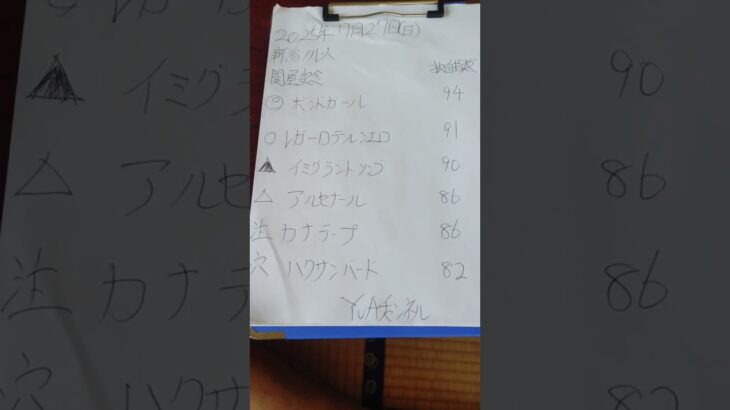 2025年7月27日(日)
新潟11レース
関屋記念
独自指数
◎ ボンドガール 94
○ レガーロデルシエロ 91
▲ イミグラントソング 90
△ アルセナール 86
注 カナテープ 86
穴 ハクサンバード 82
YUAチャンネル